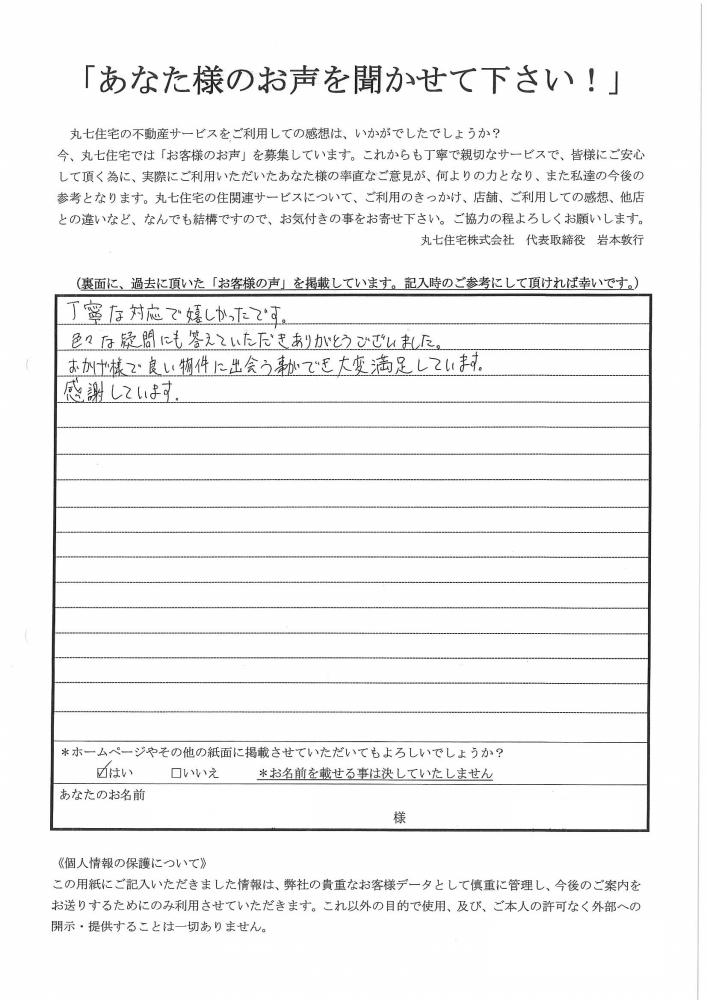 「あなた様のお声を聞かせて下さい！」
丸七住宅の不動産サービスをご利用しての感想は、いかがでしたでしょうか？
今、丸七住宅では「お客様のお声」を募集しています。これからも丁寧で親切なサービスで、皆様にご安心
して頂く為に、実際にご利用いただいたあなた様の率直なご意見が、何よりの力となり、また私達の今後の
参考となります。丸七住宅の住関連サービスについて、ご利用のきっかけ、店舗、ご利用しての感想、他店
との違いなど、なんでも結構ですので、お気付きの事をお寄せ下さい。ご協力の程よろしくお願いします。
丸七住宅株式会社　代表取締役　岩本敦行
（裏面に、過去に頂いた「お客様の声」を掲載しています。記入時のご参考にして頂ければ幸いです。）
丁寧な対応で嬉しかったです。
色々な疑問にも答えていただきありがとうございました。
おかげ様で良い物件に出会う事ができ大変満足しています。
感謝しています。
＊ホームページやその他の紙面に掲載させていただいてもよろしいでしょうか？
☑はい　□いいえ　＊お名前を載せる事は決していたしません
あなたのお名前
様
《個人情報の保護について》
この用紙にご記入いただきました情報は、弊社の貴重なお客様データとして慎重に管理し、今後のご案内を
お送りするためにのみ利用させていただきます。これ以外の目的で使用、及び、ご本人の許可なく外部への
開示・提供することは一切ありません。